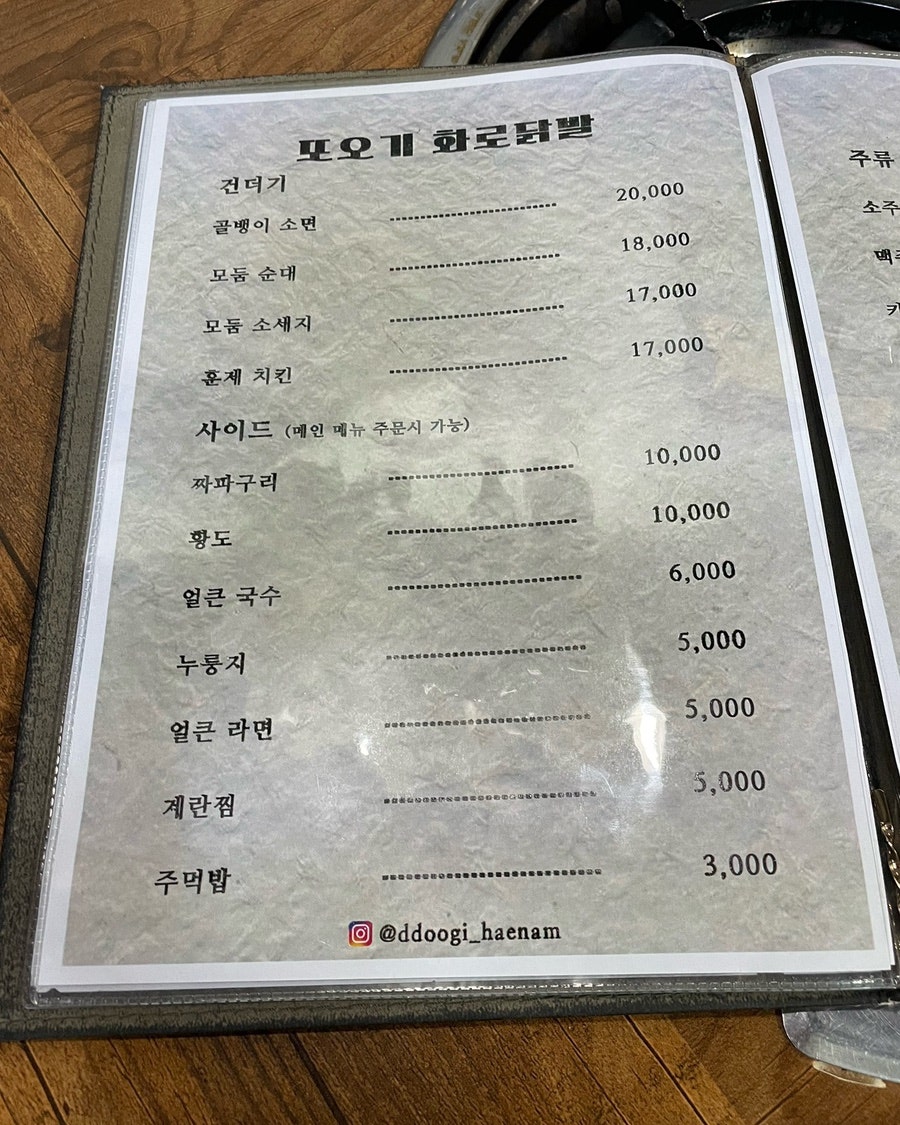 또오기 화로닭발
건더기
골뱅이 소면 20,000
모둠 순대 18,000
모둠 소세지 17,000
훈제 치킨 17,000
사이드 (메인 메뉴 주문시 가능)
짜파구리 10,000
황도 10,000
얼큰 국수 6,000
누룽지 5,000
얼큰 라면 5,000
계란찜 5,000
주먹밥 3,000
@ddoogi_haenam
주류
소주